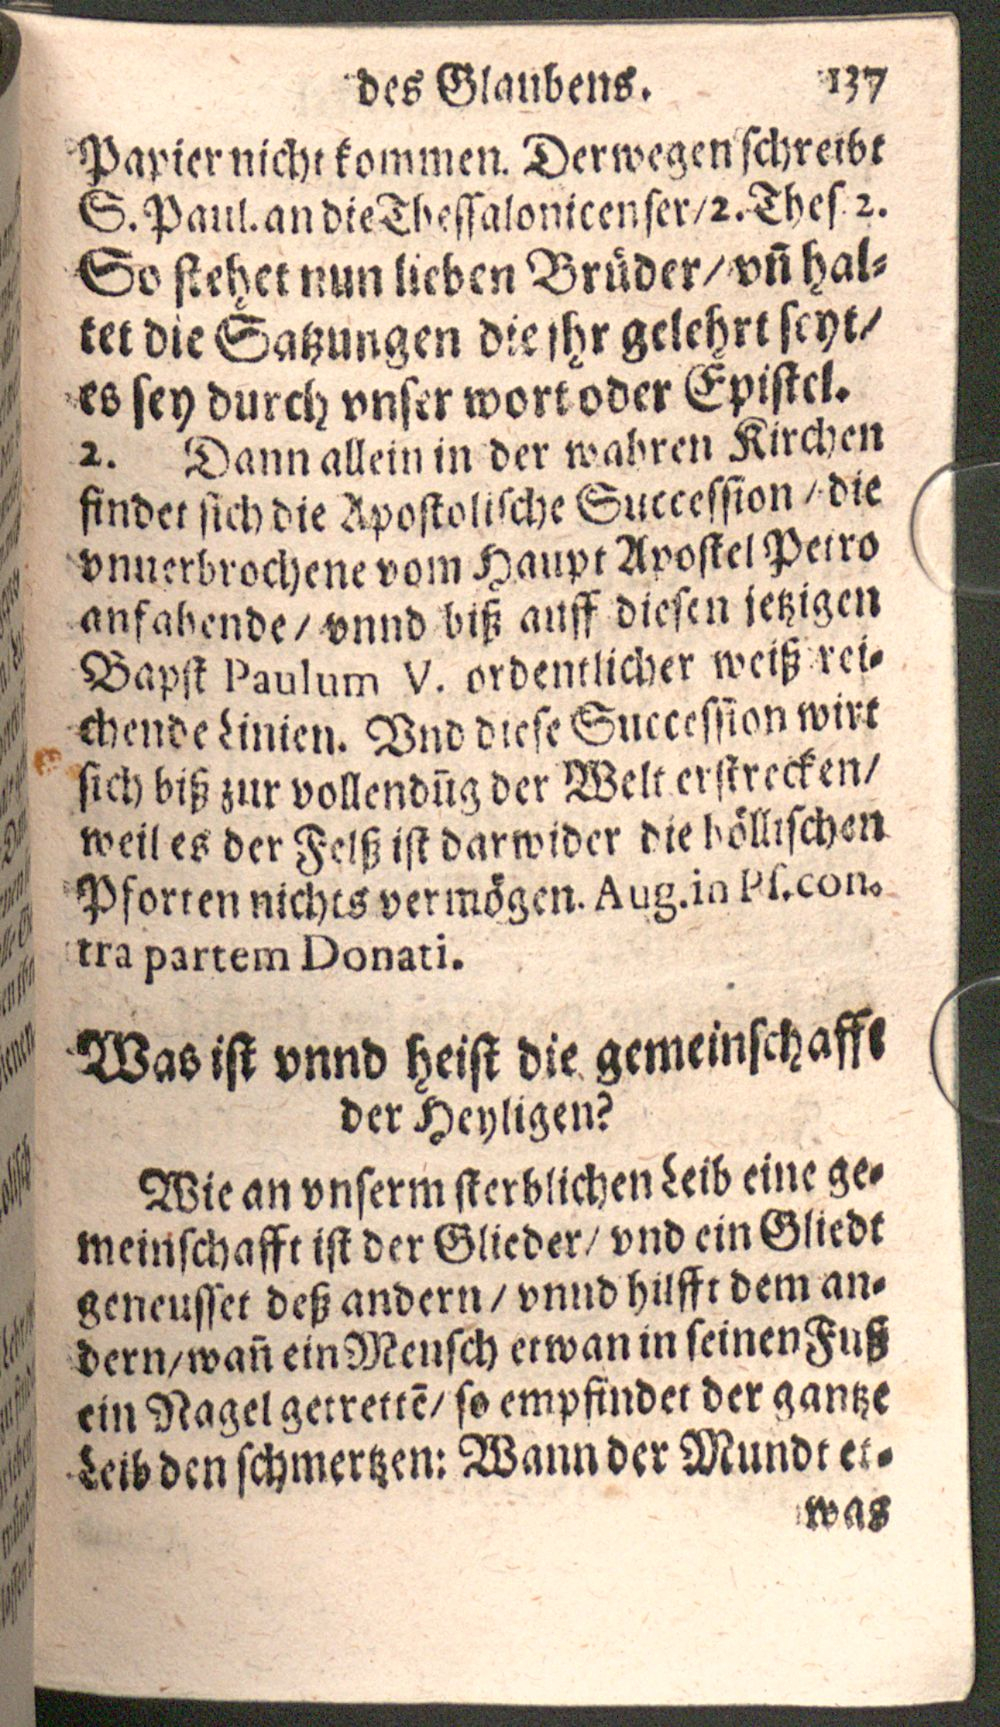 des Glaubens. 137
Papier nicht kommen. Derwegen schreibt
S. Paul. an die Thessalonicenser/2. Thes. 2.
So stehet nun lieben Brüder/vñ hal-
tet die Satzungen die jhr gelehrt seyt/
es sey durch vnser wort oder Epistel.
2. Dann allein in der wahren Kirchen
findet sich die Apostolische Succession/die
vnuerbrochene vom Haupt Apostel Petro
anfahende/vnnd biß auff diesen jetzigen
Bapst Paulum V. ordentlicher weiß rei-
chende Linien. Vnd diese Succession wirt
sich biß zur vollendũg der Welt erstrecken/
weil es der Felß ist darwider die höllischen
Pforten nichts vermögen. Aug. in Ps. con-
tra partem Donati.
Was ist vnnd heist die gemeinschafft
der Heyligen?
Wie an vnserm sterblichen Leib eine ge-
meinschafft ist der Glieder/vnd ein Gliedt
geneusset deß andern/vnnd hilfft dem an-
dern/wañ ein Mensch etwan in seinen Fuß
ein Nagel getrettẽ/so empfindet der gantze
Leib den schmertzen: Wann der Mundt et-
was